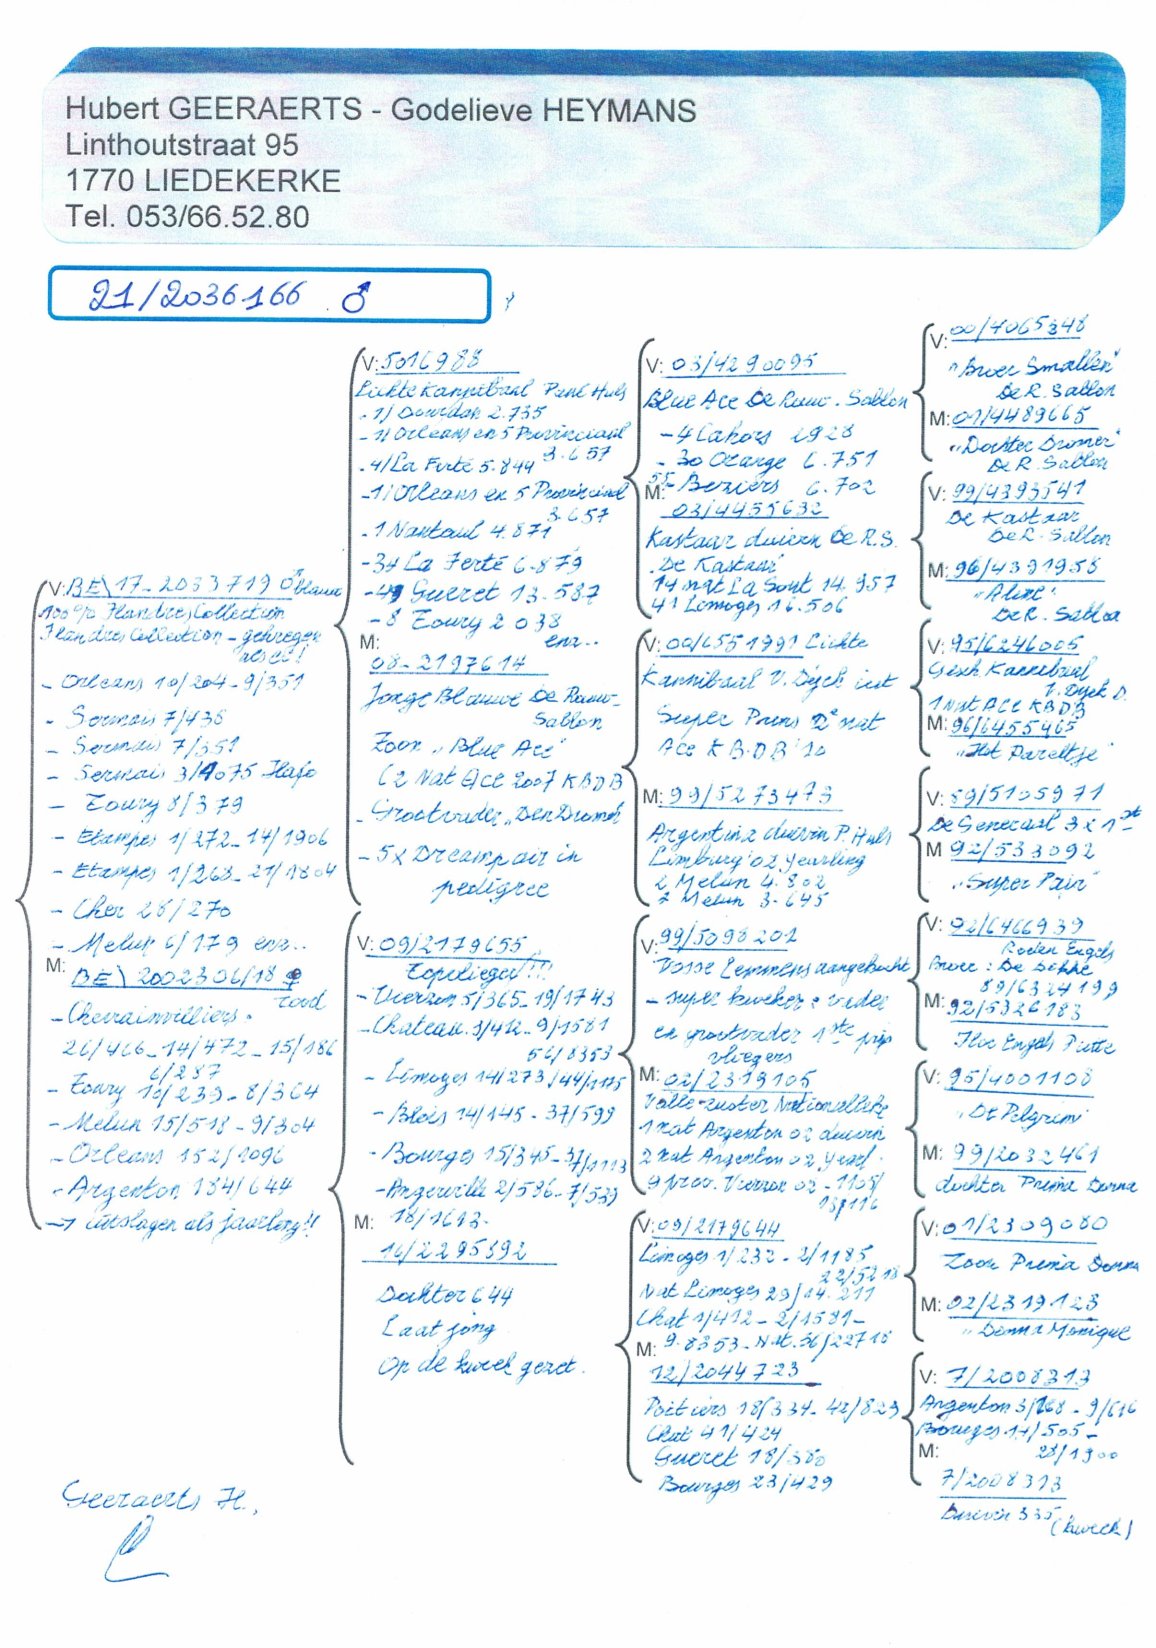 Hubert GEERAERTS - Godelieve HEYMANS
Linthoutstraat 95
1770 LIEDEKERKE
Tel. 053/66.52.80
21/2036166 ♂
V: BE\17-2033719 ♂ blauw
100% Flandres Collection
Flandres Collection - gekregen
als ei!
- Orleans 10/204 - 9/351
- Sermais 7/438
- Sermais 7/351
- Sermais 3/4075 Hafo
- Toury 8/379
- Etampes 1/272 - 14/1906
- Etampes 1/268 - 21/1804
- Cher 28/270
- Melun 6/179 enz..
M:
BE\2002306/18 ♀
- Chevrainvilliers.
26/466 - 14/472 - 15/186
6/287
- Toury 10/239 - 8/364
- Melun 15/518 - 9/304
- Orleans 152/1096
- Argenton 184/644
→ uitslagen als jaarling!!
V: 5016988
Lichte Kannibaal Paul Huls
. 1/ Dourdan 2.735
- 1/ Orleans en 5 Provinciaal
3.657
. 4/La Ferté 5.844
- 1/Orleans en 5 Provinciaal
3.657
. 1 Nanteuil 4.871
- 34 La Ferté 6.879
- 49 Gueret 13.587
- 8 Toury 2038
enz..
M:
08-2197614
Jonge Blauwe De Rauw-
Sablon
Zoon "Blue Ace"
(2 Nat Ace 2007 KBDB
- Grootvader "Den Dromer
- 5x Dreampair in
pedigree
V: 09/2179655
Topvlieger!!!
- Vierzon 5/365 - 19/1743
- Chateau. 1/412 - 9/1581
56/8353
- Limoges 14/273/44/1175
- Blois 14/145 - 37/599
- Bourges 15/345 - 37/1113
- Angerville 2/586 - 7/539
M: 18/1613.
16/2295392
Dochter 644
Laat jong
Op de kweek gezet.
V: 03/4290095
Blue Ace De Rauw-Sablon
- 4 Cahors 1928
- 30 Orange 6.751
55 Beziers 6.702
M:
03/4455632
Kastaar duivin De R.S.
. De Kastaar
14 nat La Sout 14.957
41 Limoges 16.506
V: 00/6551991 Lichte
Kannibaal V. Dyck uit
Super Prins 2e nat
Ace KBDB '10
M: 99/5273473
Argentina duivin P. Huls
Limburg '02 yearling
2 Melun 4.802
7 Melun 3.645
V: 99/5098201
Vosse Lemmens aangekocht
- super kweker: vader
en grootvader 1ste prijs
vliegers
M: 02/2319105
Volle zuster Nationalleke
1 nat Argenton 02 duivin
2 nat Argenton 02 yearl.
9 prov. Vierzon 02 - 1105/
V: 09/2179644
Limoges 1/232 - 2/1185
22/5218
Nat Limoges 29/14.211
Chat 1/412 - 2/1581 -
M: 9.8353 - Nat. 56/22718
12/2044723
Poitiers 18/334 - 42/829
Chat 41/424
Gueret 18/380
Bourges 23/429
V: 00/4065348
"Broer Smallen"
De R. Sablon
M: 01/4489665
"Dochter Dromer"
De R. Sablon
V: 99/4393541
De Kastaar
De R. Sablon
M: 96/4391958
"Aline"
De R. Sablon
V: 95/6246005
Gesch Kannibaal
V. Dyck D.
1 Nat Ace KBDB
M: 96/6455465
"Het Pareltje"
V: 89/5105971
De Generaal 3 x 1ste
M 92/533092
"Super Pair"
V: 02/6466939
Roden Engels
Broer: De Dikke
89/6324199
M: 92/5326183
Floc Engels Putte
V: 95/4001108
"De Pelgrim"
M: 99/2032461
dochter Prima Donna
V: 01/2309080
Zoon Prima Donna
M: 02/2319123
"Donna Monique
V: 7/2008313
Argenton 3/168 - 9/616
Bourges 14/505 -
28/1900
M:
7/2008313
Duivin 335
(kweek)
Geeraerts H.,